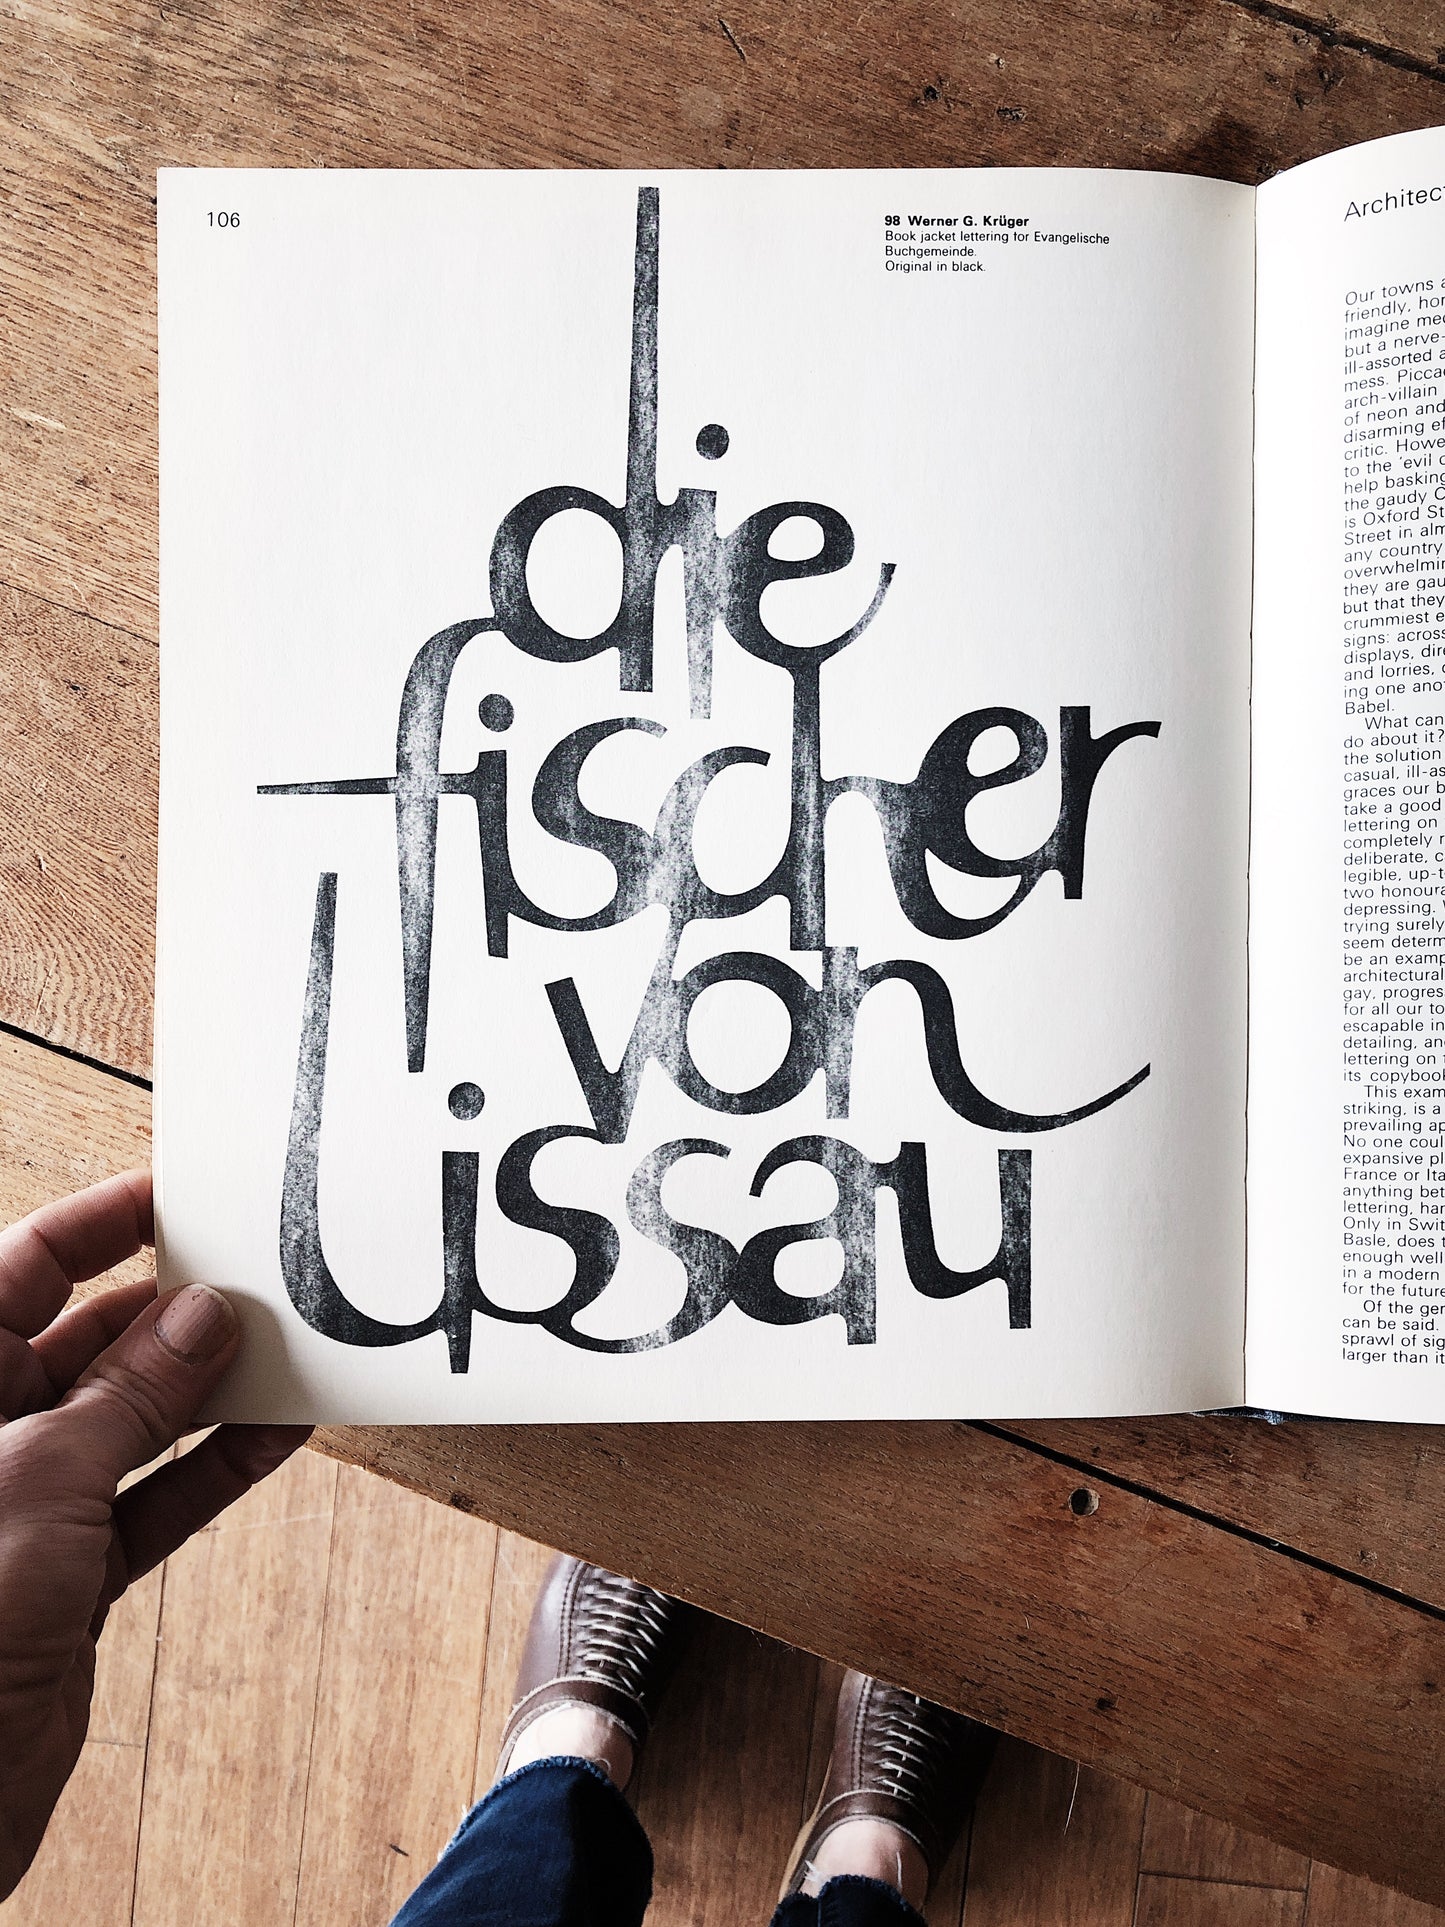 106
98 Werner G. Krüger
Book jacket lettering for Evangelische
Buchgemeinde.
Original in black.
die
fischer
von
lissau
Our towns
friendly,
imagine
but a nerve-
ill-assorted
mess.
arch-villain
of neon and
disarming
critic.
to the 'evil
help basking
the gaudy
is Oxford
Street in
any country
they are
but that they
crummiest
signs: across
displays,
and lorries,
ing one
Babel.
What can
do about it?
the solution
casual,
graces our
take a good
lettering on
completely
deliberate,
legible,
two
depressing.
trying surely
seem
be an
architectural
gay,
for all our
escapable in
detailing,
lettering on
its
This
striking, is a
prevailing
No one
expansive
France or
anything
lettering,
Only in
Basle, does
enough well
in a modern
for the future
Of the
can be said.
sprawl of
larger than